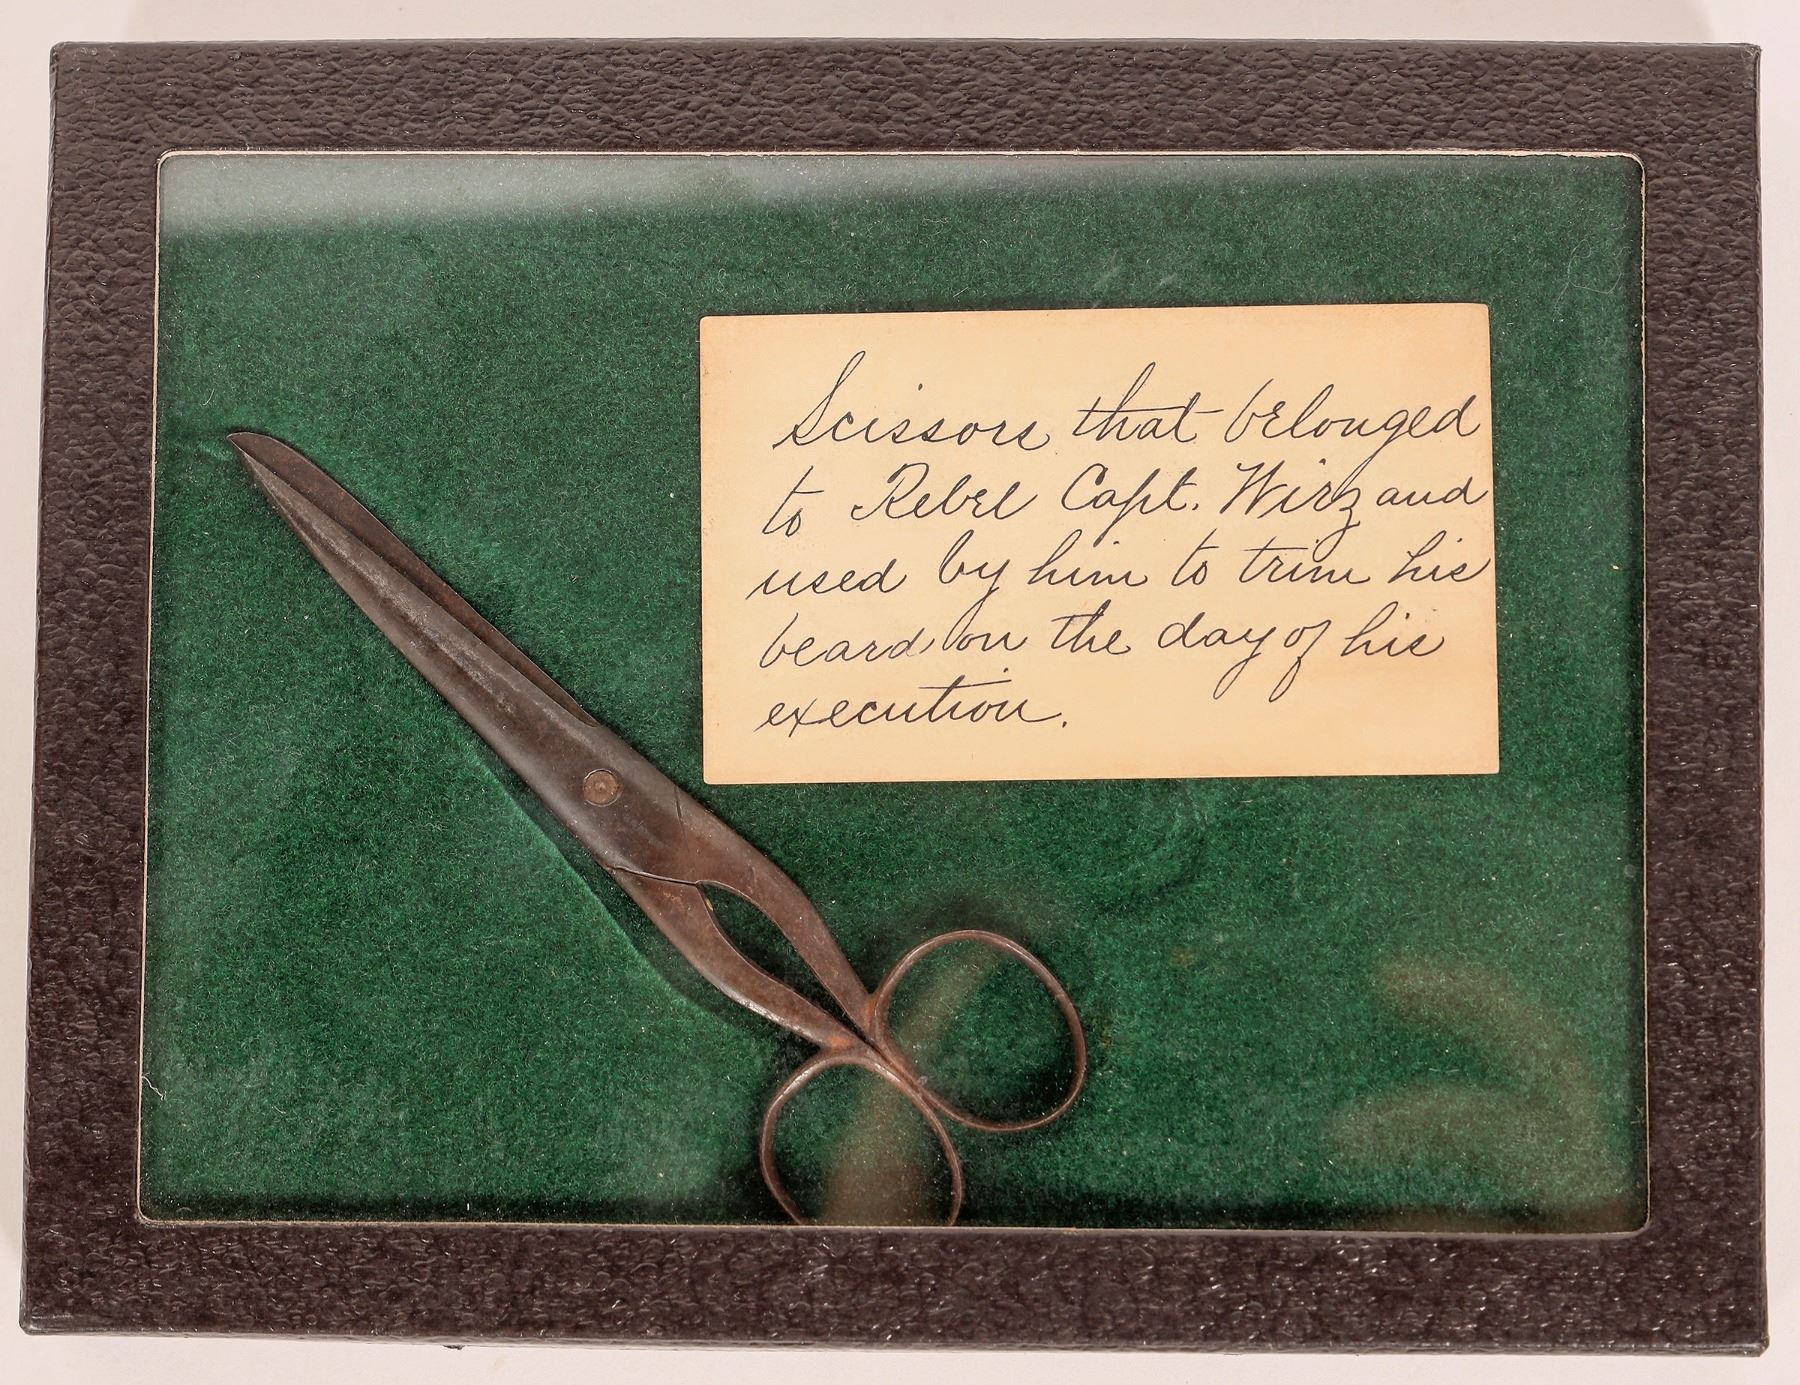 Scissors that belonged
to Rebel Capt. Wirz and
used by him to trim his
beard on the day of his
execution.